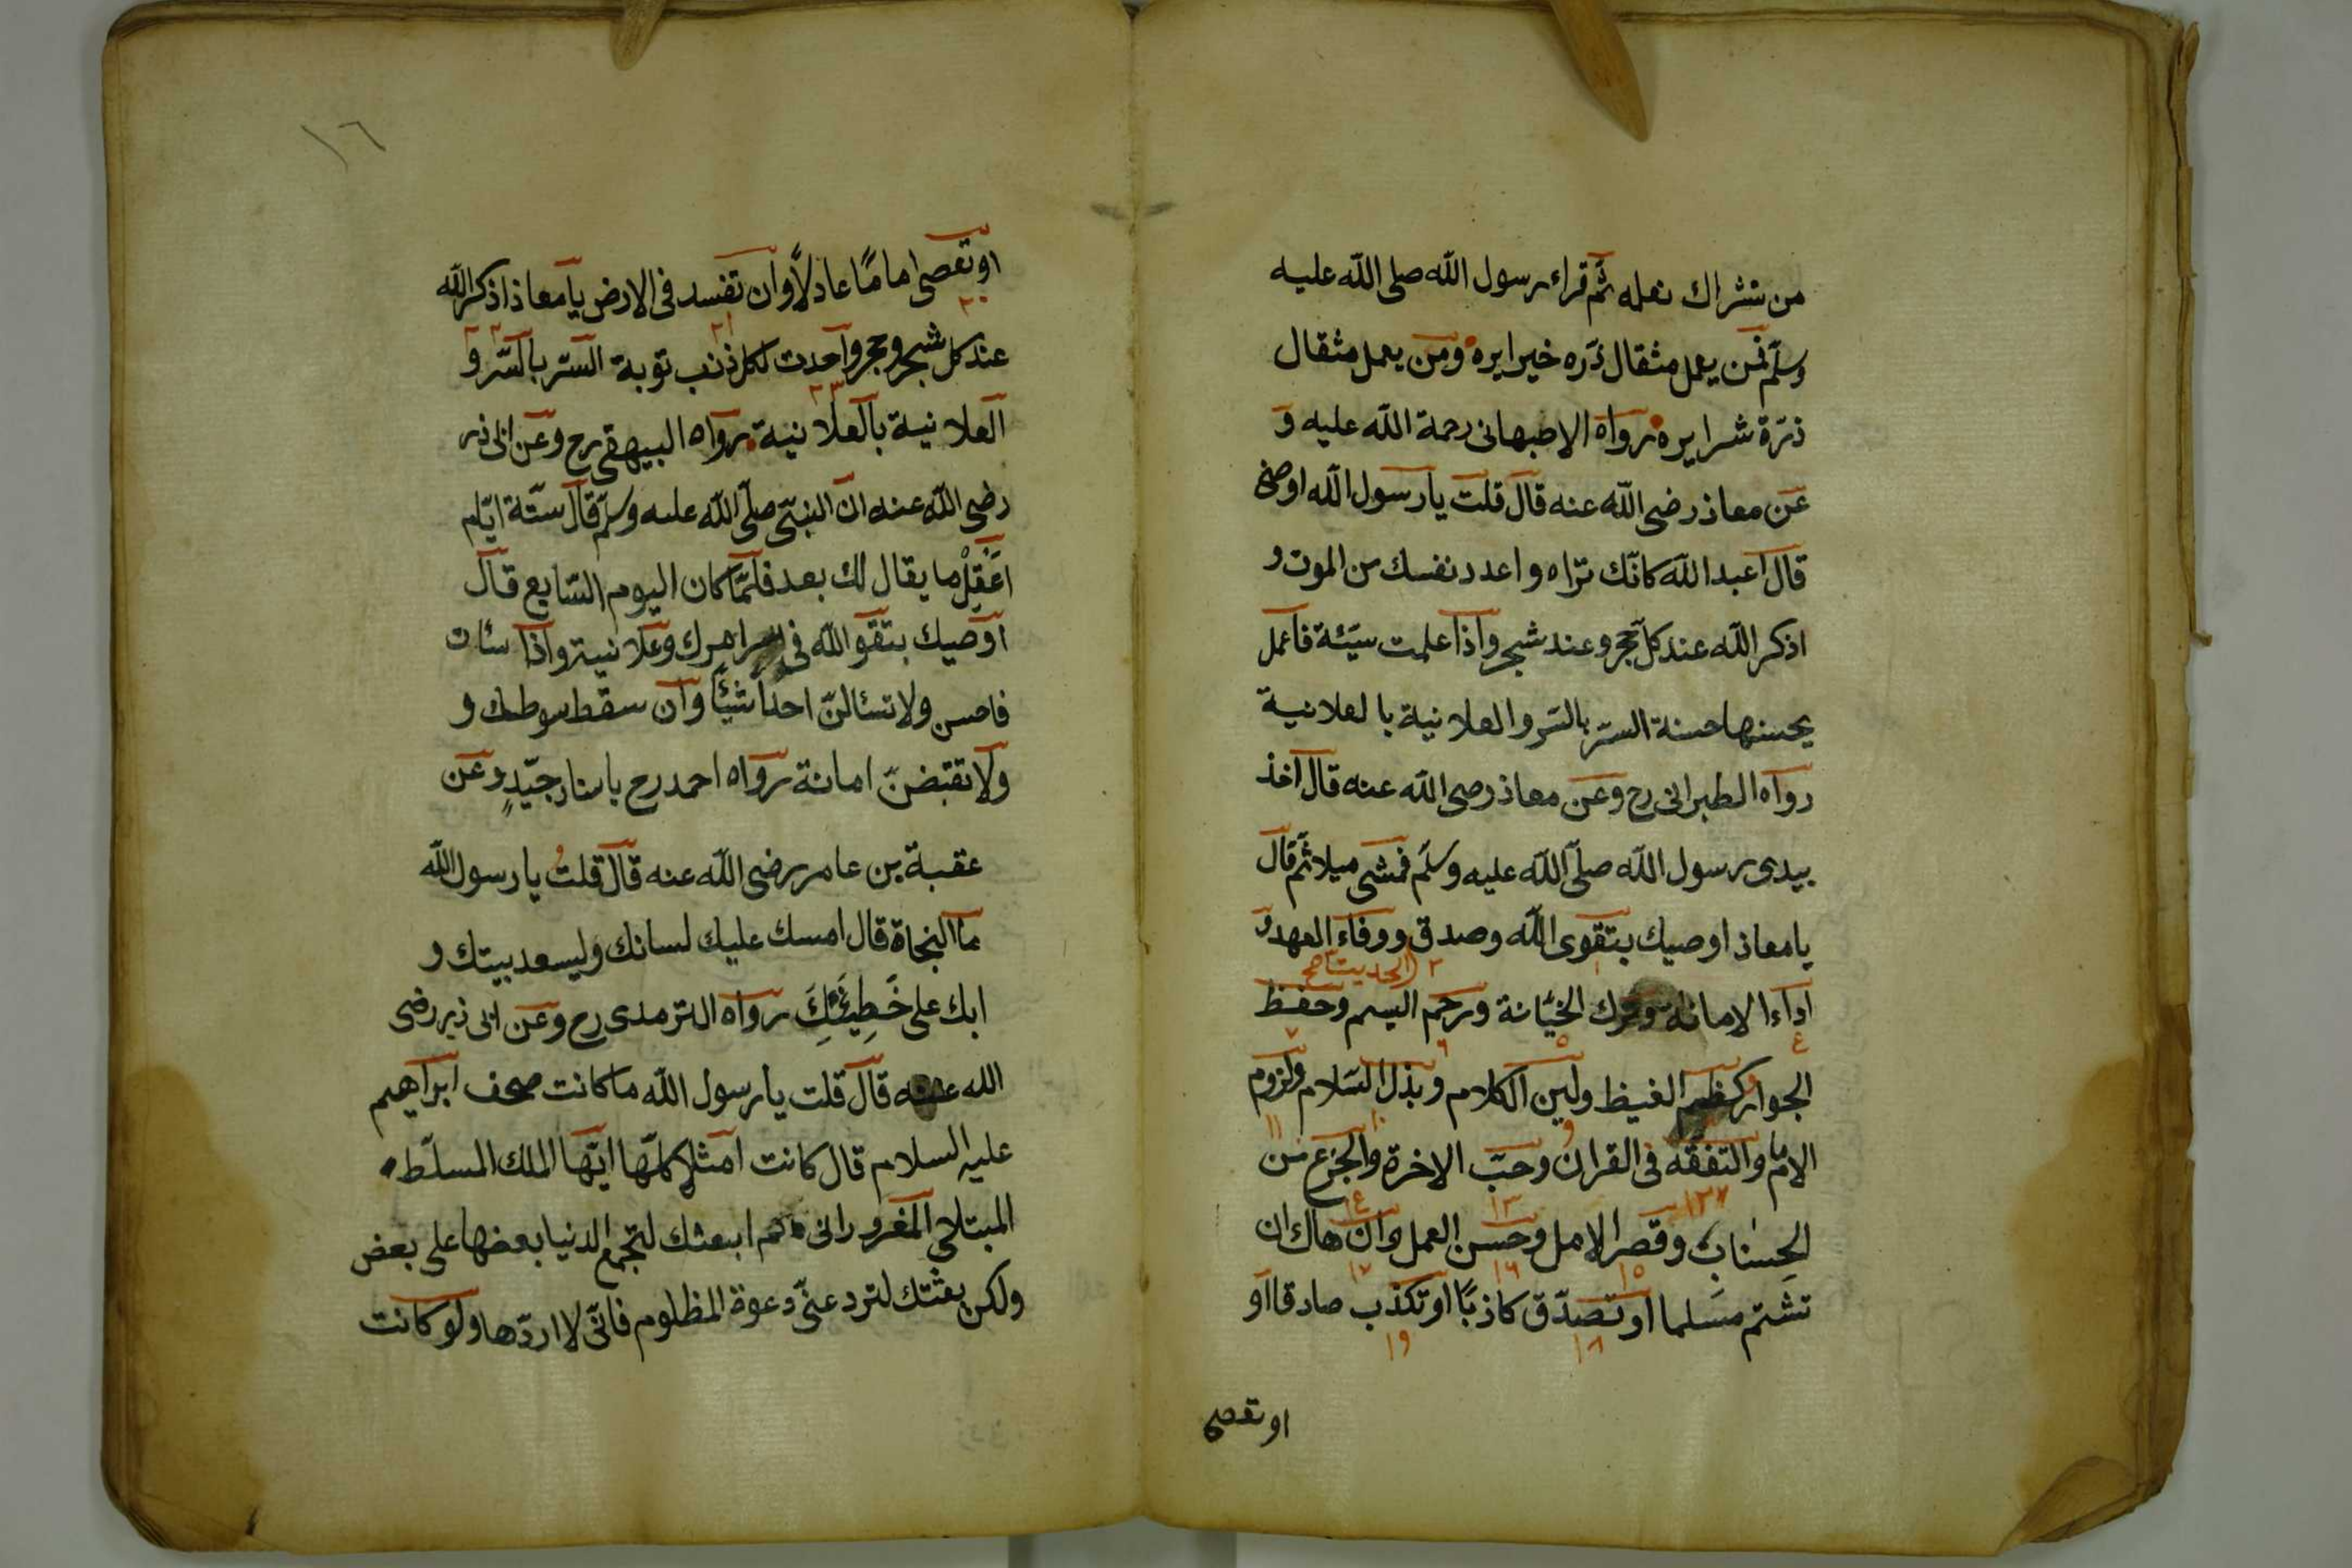 من شراك نعله ثم قراء رسول الله صلى الله عليه
وسلم فمن يعمل مثقال ذره خيرا يره ومن يعمل مثقال
ذرة شرا يره رواه الاصبهانى رحمة الله عليه و
عن معاذ رضى الله عنه قال قلت يا رسول الله اوصنى
قال اعبد الله كانّك تراه واعدد نفسك من الموت و
اذكر الله عند كل حجر وعند شجر واذا علمت سيّئة فاعمل
بحسنها حسنة السّر بالسّر والعلانية بالعلانية
رواه الطبرانى رح وعن معاذ رضى الله عنه قال اخذ
بيدى رسول الله صلّى الله عليه وسلّم فمشى ميلا ثم قال
يا معاذ اوصيك بتقوى الله وصدق ووفاء العهد و
١ ٢ الحديث صح ٣
اداء الامانة وترك الخيانة ورحم اليسم وحفظ
٤ ٥ ٦ ٧
الجوار وكظم الغيظ ولين الكلام وبذل السّلام ولزوم
٩ ١٠ ١١
الامام والتفقّه فى القران وحبّ الاخرة والجزع من
١٢ ١٣ ١٤
الحسناب وقصر الامل وحسن العمل وان هاك ان
١٥ ١٦ ١٧
تشتم مسلما او تصدّق كاذبًا او تكذب صادقا او
١٨ ١٩
او تعصى
١٦
او تعصى امامًا عادلاً وان تفسد فى الارض يا معاذ اذكر الله
٢٠
عند كل شجر وحجر واحدث لكل ذنب توبة السّر بالسّر و
٢١ ٢٢
العلانية بالعلانية رواه البيهقى رح وعن ابى ذر
٢٣
رضى الله عنه انّ النبىّ صلّى الله عليه وسلّم قال ستّة ايّام
اعقِلْ ما يقال لك بعد فلمّا كان اليوم السّابع قال
اوصيك بتقو الله فى امرك وعلانيته واذا سئات
فاحسن ولا تسئالنّ احدًا شيًئا وان سقط سوطك و
ولا تقبضنّ امانة رواه احمد رح باسناد جيّدٍ وعن
عقبة بن عامر رضى الله عنه قال قلتُ يا رسول الله
ما النجاة قال امسك عليك لسانك وليسعد بيتك و
ابك على خَطِيئَتِكَ رواه الترمدى رح وعن ابى ذر رضى
الله عنه قال قلت يا رسول الله ما كانت صحف ابراهيم
عليه السلام قال كانت امثلا كلّها ايّها الملك المسلّط
المبتلى المغرور انى لم ابعثك لتجمع الدنيا بعضها على بعض
ولكن بعثتك لترد عنّى دعوة المظلوم فانّى لا اردّها ولو كانت